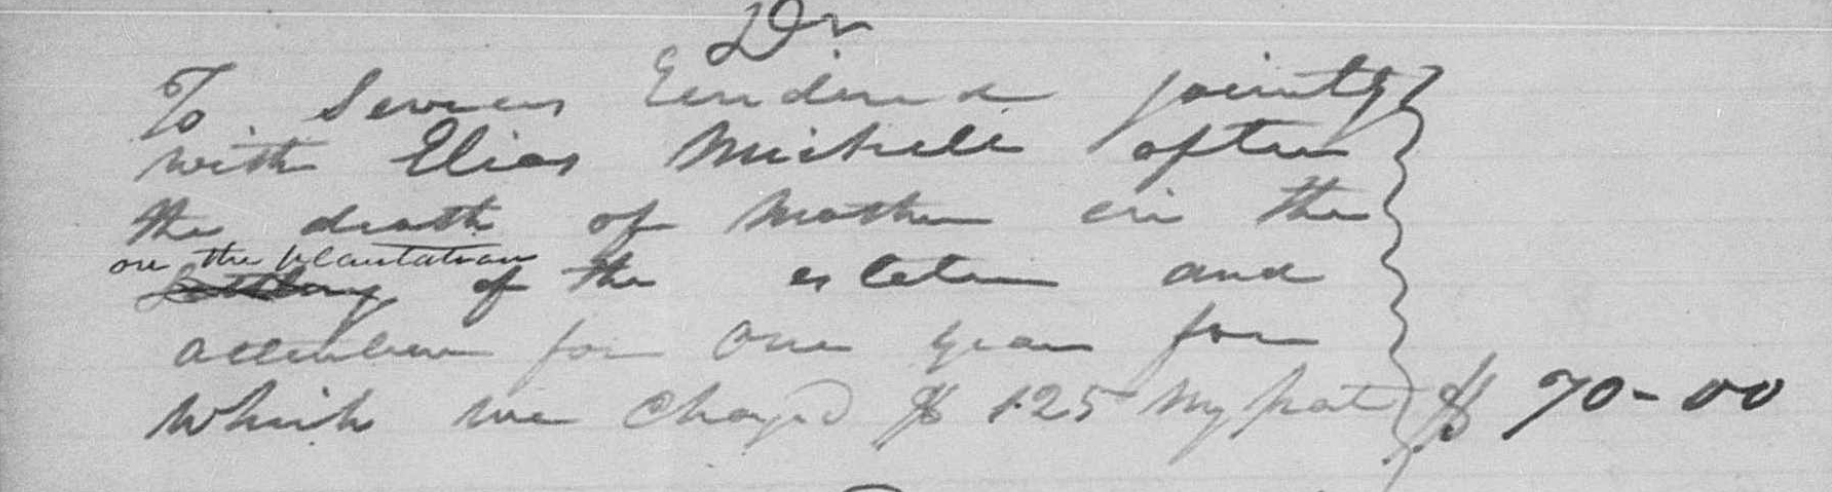 Dr
To Services Rendered jointly
with Elias Michell after
the death of Mother in the
on the plantation
of the estate and
attention for one year for
which we charged $125 My part $70-00